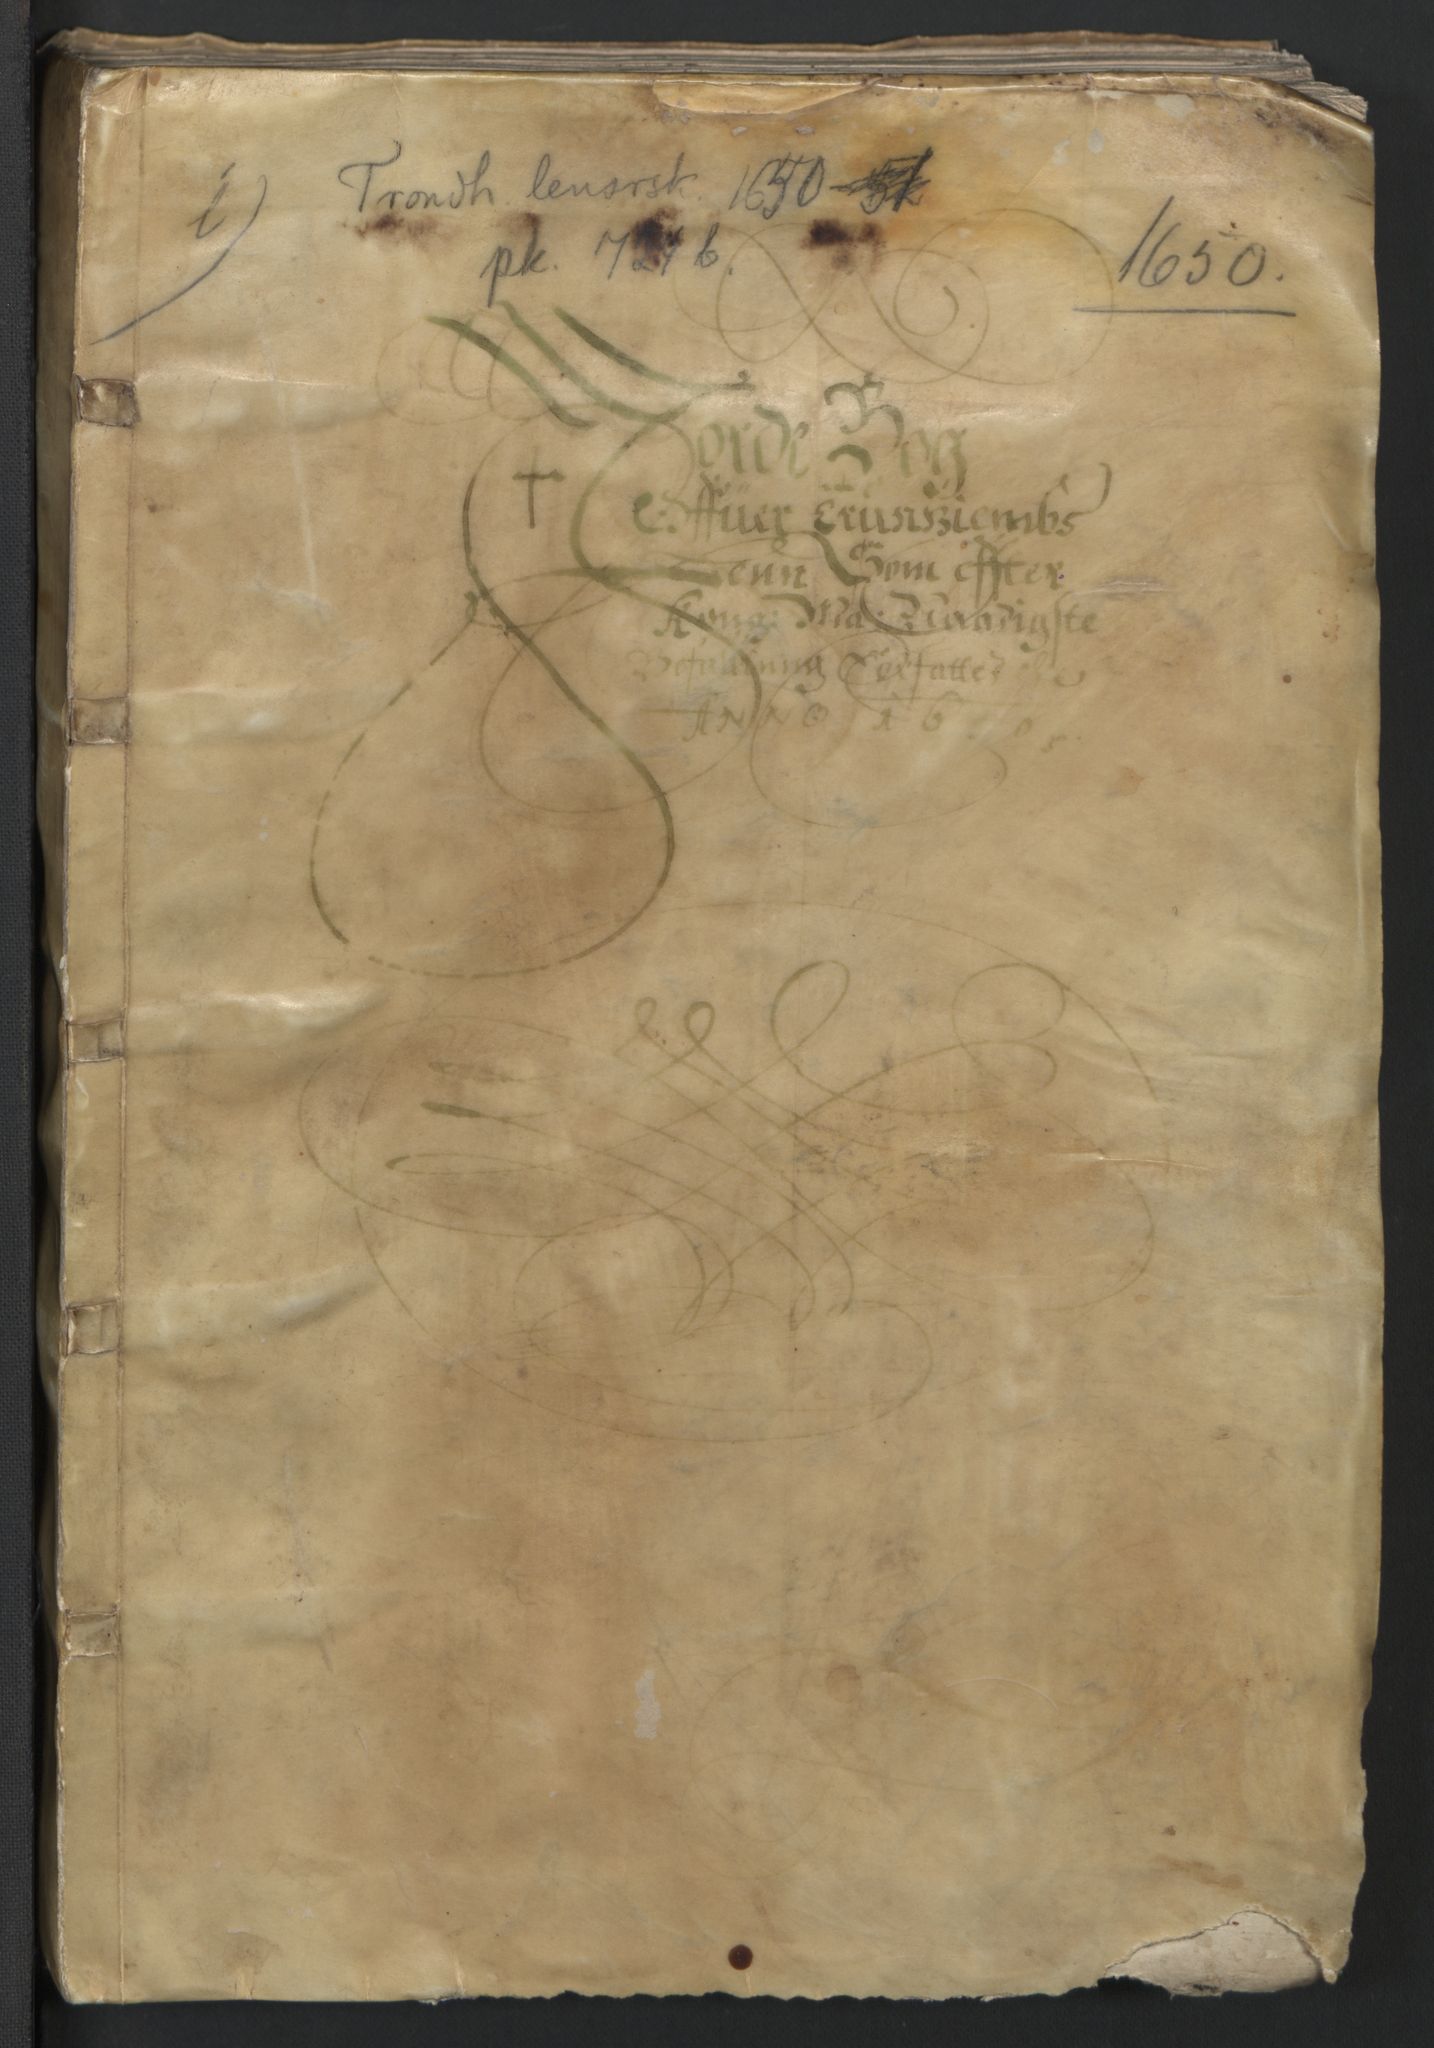 i)
Trondh. lensrsk. 1650
pk. 721 b.
1650.
Jorde Bog
Offuer Trundhiembs
Lenn Som effter
Kong: Ma: Naadigste
Befalning Forfatted
ANNO 16